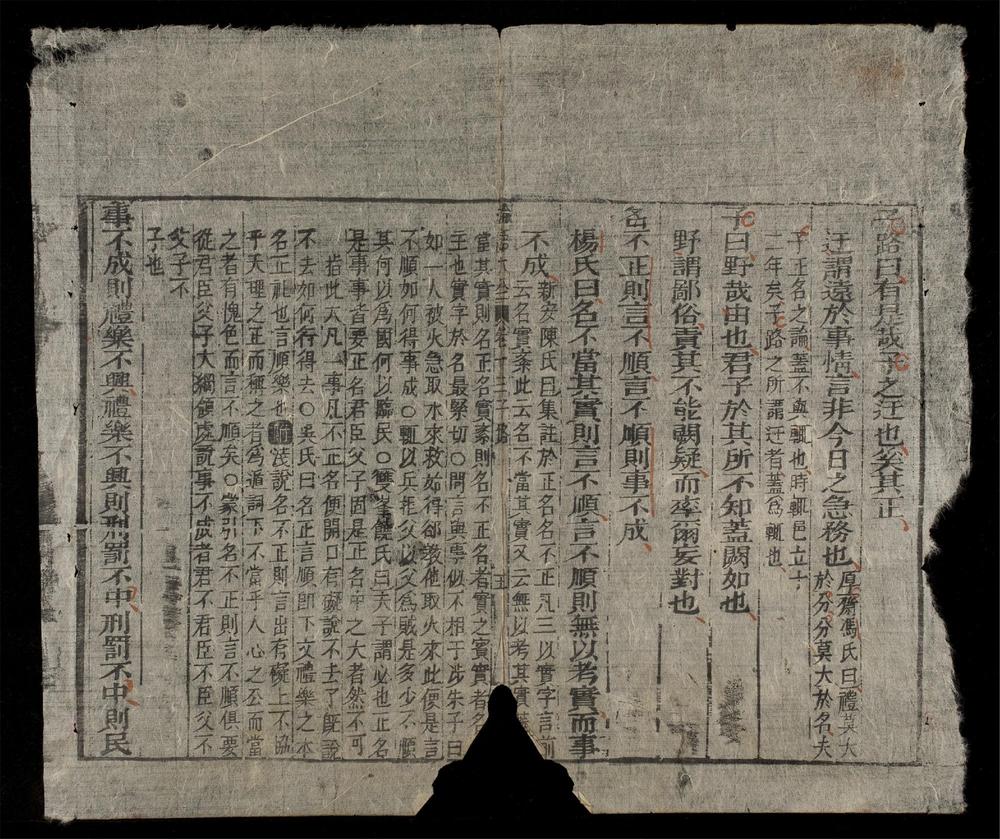 子路曰有是哉子之迂也奚其正
迂謂遠於事情言非今日之急務也厚齋馮氏曰禮莫大
於分分莫大於名夫
子正名之論蓋不與輒也時輒邑立十
二年矣子路之所謂迂者蓋爲輒也
子曰野哉由也君子於其所不知蓋闕如也
野謂鄙俗責其不能闕疑而率爾妄對也
名不正則言不順言不順則事不成
楊氏曰名不當其實則言不順言不順則無以考實而事
不成新安陳氏曰集註於正名名不正凡三以實字言前
云名實紊此云名不當其實又云無以考其實
當其實則名正名實紊則名不正名者實之賓實者名
主也實字於名最緊切○問言與事似不相干涉朱子曰
如一人被火急取水來救始得卻教他取火來此便是言
不順如何得事成○輒以兵拒父以父爲賊是多少不順
其何以爲國何以臨民○雙峯饒氏曰夫子謂必也正名
是事事皆要正名君臣父子固是正名中之大者然不可
指此六凡一事凡不正名便開口有礙說不去了旣說
不去如何行得去○吳氏曰名正言順卽下文禮樂之本
名正祖也言順樂也附淺說名不正則言出有礙上不協
乎天理之正而稱之者爲遁詞下不當乎人心之公而當
之者有愧色而言不順矣○蒙引名不正則言不順俱要
從君臣父子大綱領處說事不成者君不君臣不臣父不
父子不
子也
事不成則禮樂不興禮樂不興則刑罰不中刑罰不中則民